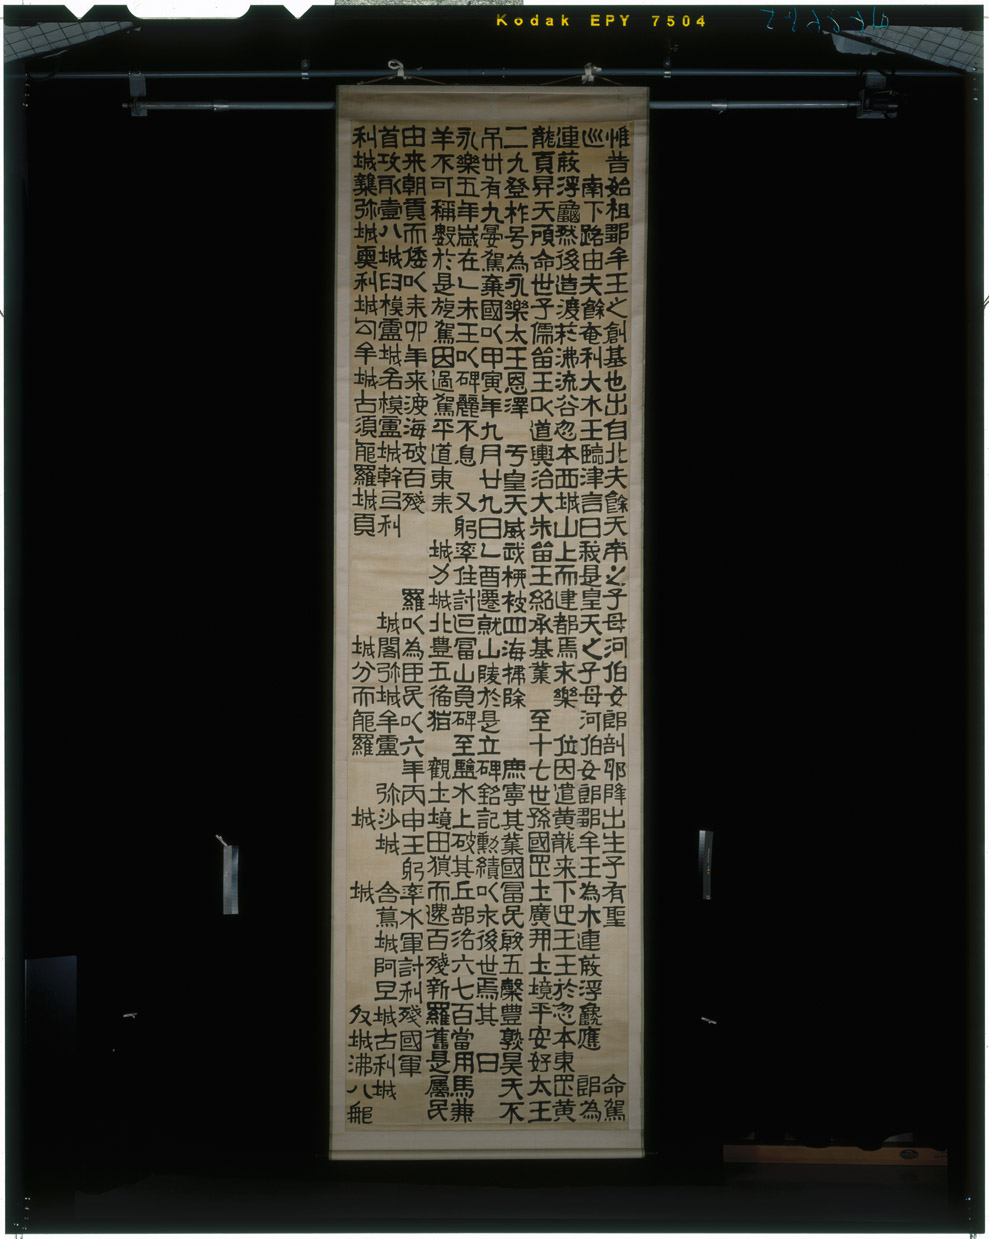 Kodak EPY 7504
惟昔始祖鄒牟王之創基也出自北夫餘天帝之子母河伯女郎剖耶降出生子有聖 命駕
巡 南下路由夫餘奄利大木王臨津言曰我是皇天之子母河伯女郎鄒牟王為木連葭浮龜應 郎為
連葭浮龜然後造渡於沸流谷忽本西城山上而建都焉末樂 位因遣黄龍来下迊王王於忽本東罡黄
龍頁昇天顧命世子儒留王以道輿治大朱留王紹承基業 至十七世孫國罡上廣開土境平安好太王
二九登祚号為永樂太王恩澤 于皇天威武柳被四海掃除 庶寧其業國冨民殷五穀豊熟昊天不
吊卅有九晏駕棄國以甲寅年九月廿九日乙酉遷就山陵於是立碑銘記勲績以永後世焉其 曰
永樂五年歳在乙未王以碑麗不息 又躬率住討叵冨山負碑至鹽水上破其丘部洛六七百當用馬兼
羊不可稱數於是旋駕因過駕平道東来 城力城北豊五備猶 觀土境田獵而還百殘新羅舊是屬民
由来朝貢而倭以耒卯年来渡海破百殘 羅以為臣民以六年丙申王躬率水軍討利殘國軍
首攻取壹八城臼模盧城各模盧城幹弖利 城閣弥城牟盧 弥沙城 舍蔦城阿旦城古利城
利城弥城奥利城勾牟城古須能羅城頁 城分而能羅 城 城 奴城沸八郍